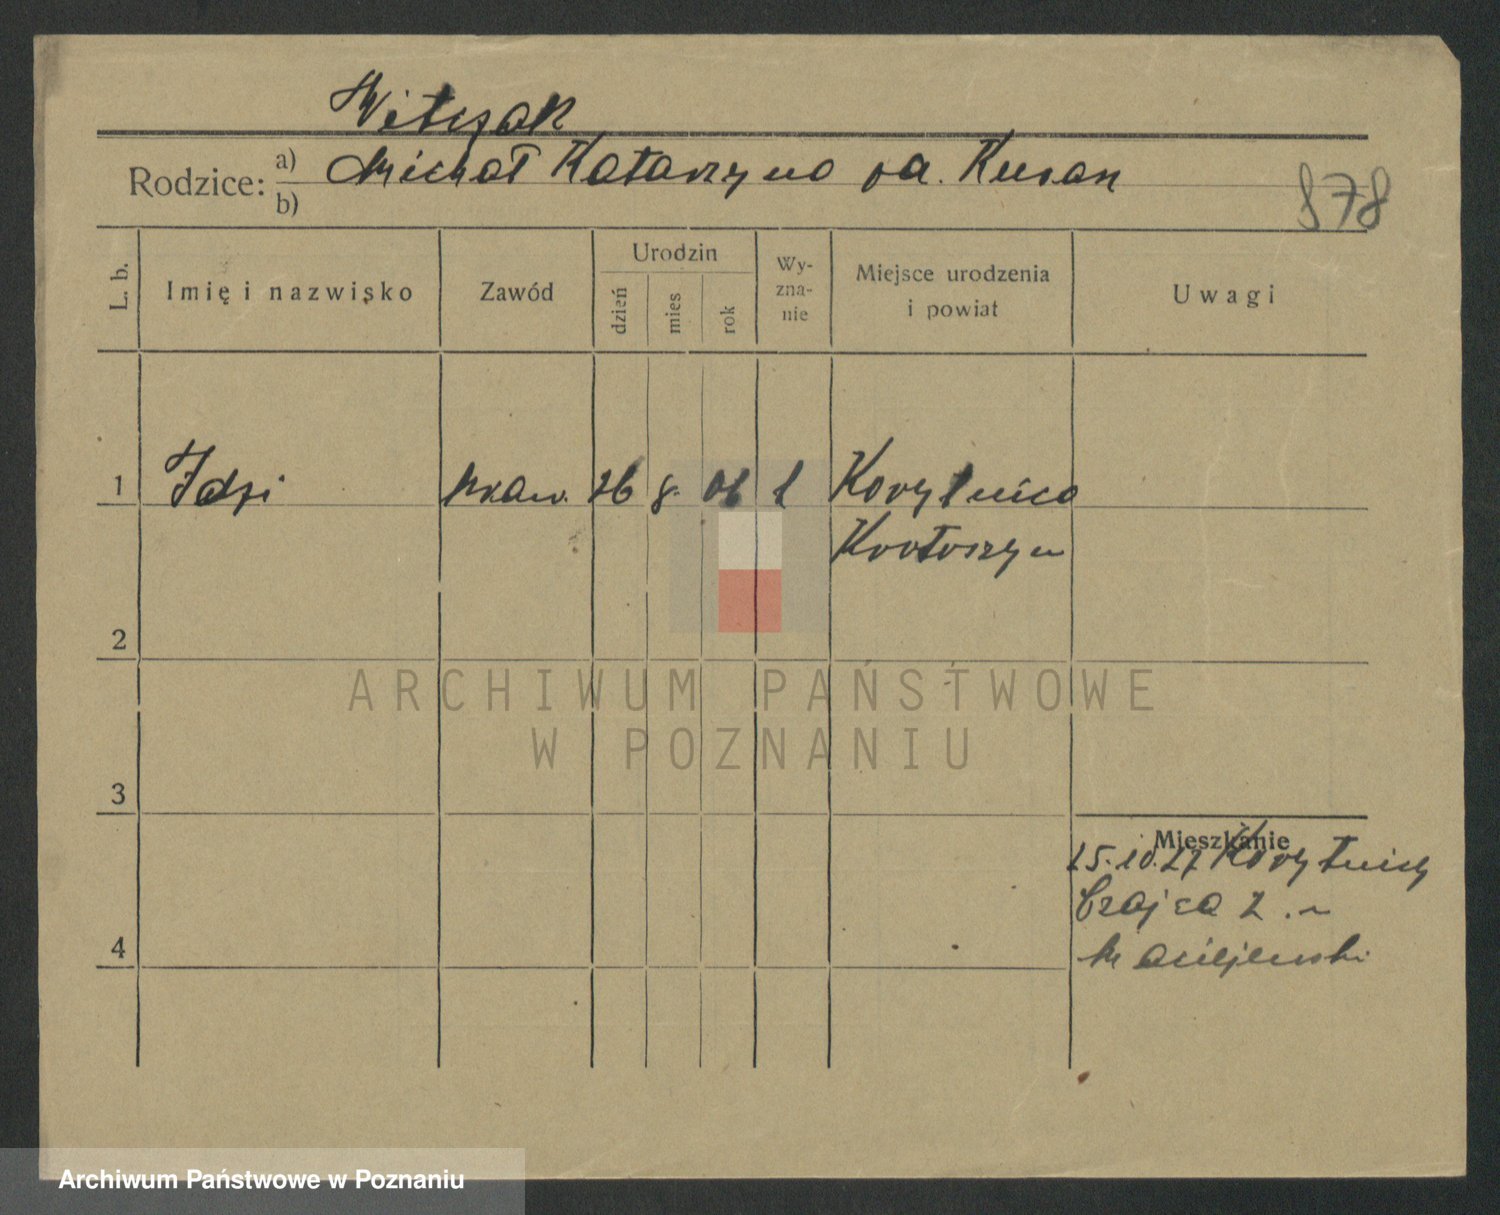 Witczak
Rodzice: a) Michał Katarzyna
b)
878
L. b.
Imię i nazwisko
Zawód
Urodzin
dzień
mies
rok
Wy-
zna-
nie
Miejsce urodzenia
i powiat
Uwagi
1 Idzi 26 8. 06 Korytnica
Krotoszyn
2
3
4
Mieszkanie
25.10.27 Korytnicy
Czajcza 2.
Maciejewski
ARCHIWUM PAŃSTWOWE
W POZNANIU
Archiwum Państwowe w Poznaniu